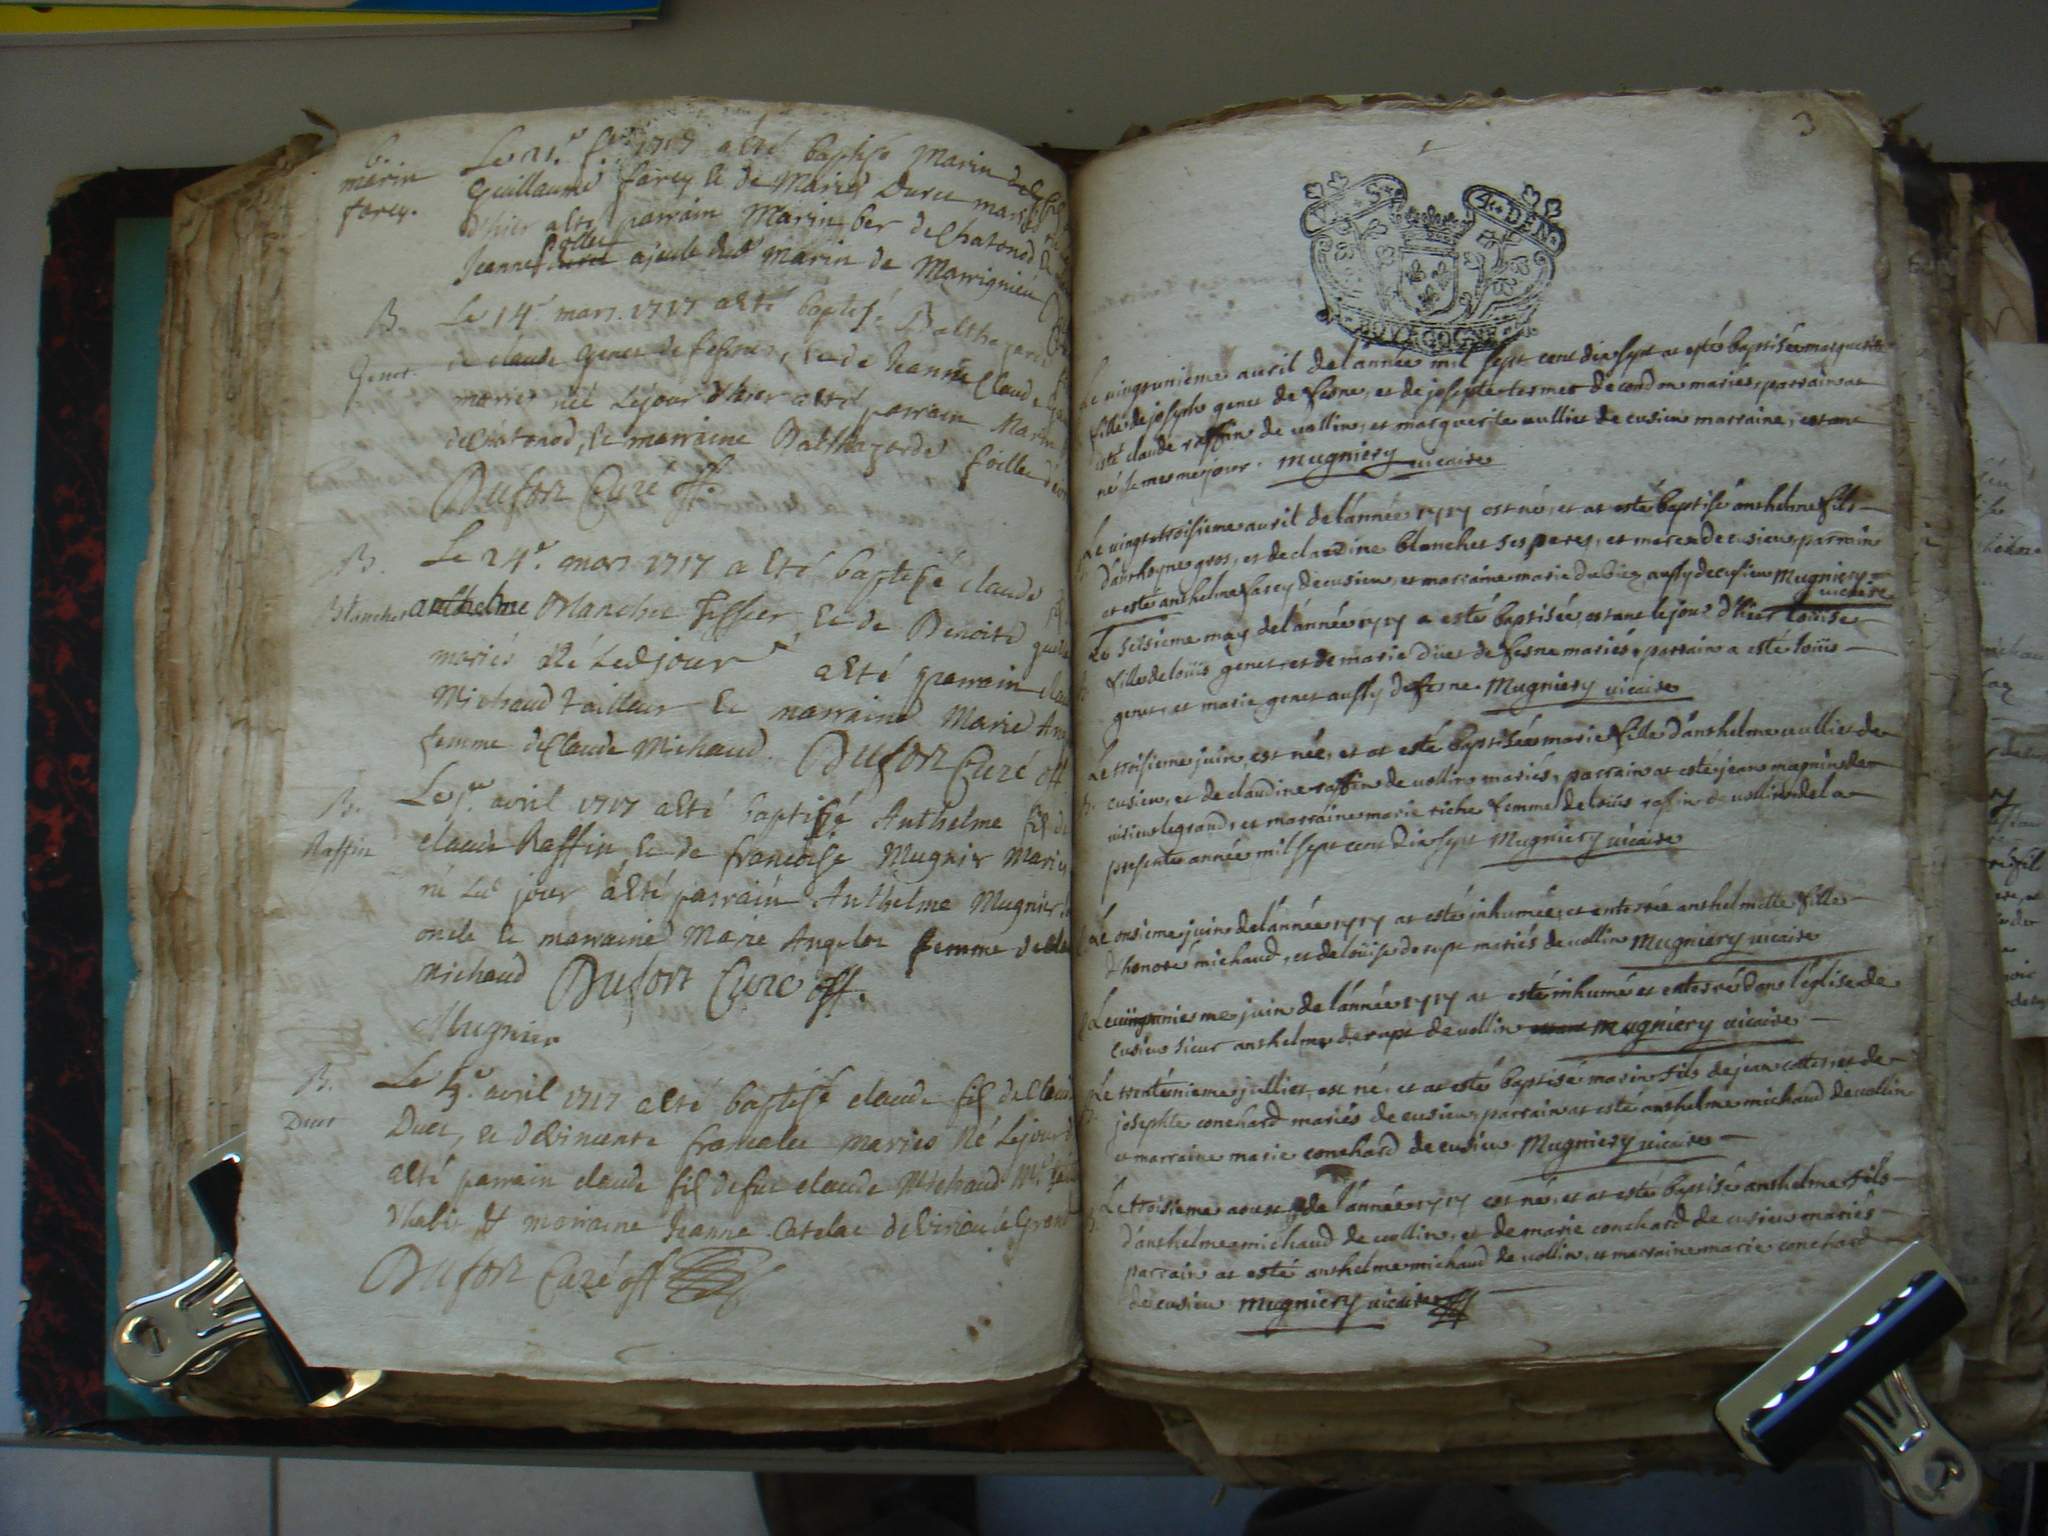 B.
marin
farcy.
Le 21e fev. 1717 a esté baptisé Marin
Guillaume farcy & de Marie Duret mariés
d'hier a esté parrain Marin ber de Chatonod
Jeanne collet ajeule dud marin de Marrignieu
B.
Genet.
Le 14e mars 1717 a esté baptisé Balthazard
de claude genet de fesne, & de Jeanne Claude
mariés né Le jour d'hier a esté parrain Marin
de Chatonod, & marraine Balthazarde
Dufort Curé off.
B.
Blanchet
Le 24e mars 1717 a esté baptisé claude
anthelme Blanchet Tissier & de Benoite
mariés né Ledjour a esté parrain
Michaud tailleur & marraine Marie
femme de Claude Michaud. Dufort Curé off
B.
Raffin
Le 1er avril 1717 a esté baptisé Anthelme fils
claude Raffin & de francoise Mugnier Mariés
né Led jour a esté parrain Anthelme Mugnier
oncle & marraine Marie Angelot femme de
Michaud Dufort Curé off.
Mugnier
B.
Duet
Le 3e avril 1717 a esté baptisé claude fils de
Duet, & de vincente mariés Né Le jour
a esté parrain claude fils de feu claude Michaud
& marraine Jeanne de Virieu le Grand
Dufort Curé off
3
4. DEN.
BOVRGOGNE
Le vingtunieme avril de lannée mil sept cent dix sept at esté baptisée marguerite
fille de joseph genet de fesne, et de josephte termet de condon mariés, parrain at
esté claude raffin de vollin, et marguerite vulliet de cusieu marraine, estant
né le mesme jour. Mugniery vicaire
Le vingt troisieme avril de lannée 1717 est né, et at esté baptisé anthelme fils
danthoyne gros, et de claudine blanchet ses pere, et mere de cusieu, parrain
at esté anthelme farcy de cusieu, et marraine marie dubiez aussy de cusieu Mugniery
vicaire
Le seisieme may de lannée 1717 a esté baptisée, estant le jour d'hier louise
fille de loüis genet, et de marie düet de fesne mariés, parrain a esté loüis
genet, et marie genet aussy de fesne. Mugniery vicaire
B.
Le troisieme juin, est née, et at esté baptisée marie fille danthelme vulliet de
cusieu, et de claudine raffin de vollin mariés, parrain at esté jean magnin de
virieu le grand, et marraine marie riche femme de loüis rafin de vollin de la
presente année mil sept cent dix sept Mugniery vicaire
Le onsieme juin de lannée 1717 at esté inhumée, et enterrée anthelmette fille
d'honoré michaud, et de loüise derupt mariés de vollin Mugniery vicaire
Le vingtunieme juin de lannée 1717 at esté inhumé et enterré dans l'église de
cusieu sieur anthelme derupt de vollin Mugniery vicaire
Le trentünieme julliet, est né, et at esté baptisé marin fils de jean collet, et de
josephte conchard mariés de cusieu, parrain at esté anthelme michaud de vollin
et marraine marie conchard de cusieu Mugniery vicaire
Le troisieme aoust de lannée 1717 est né, et at esté baptisé anthelme fils
d'anthelme michaud de vollin, et de marie conchard de cusieu mariés
parrain at esté anthelme michaud de vollin, et marraine marie conchard
de cusieu Mugniery vicaire